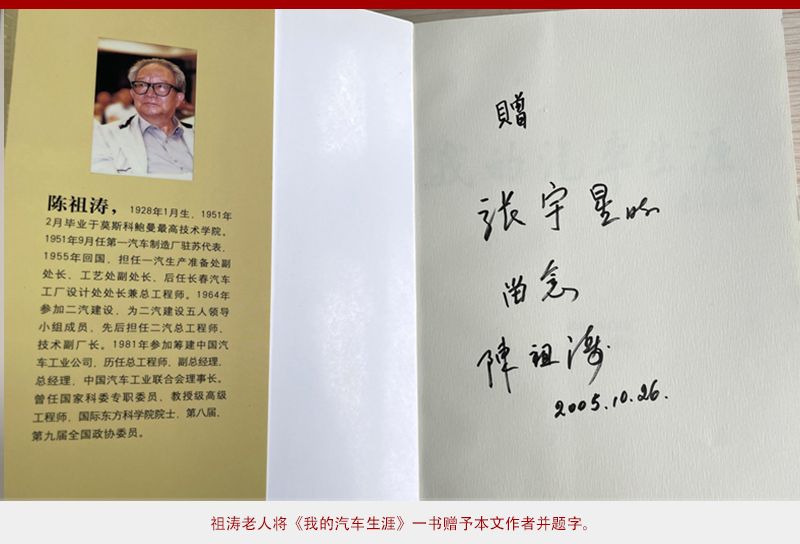 陈祖涛，1928年1月生，1951年
2月毕业于莫斯科鲍曼最高技术学院。
1951年9月任第一汽车制造厂驻苏代表、
1955年回国，担任一汽生产准备处副
处长、工艺处副处长、后任长春汽车
工厂设计处处长兼总工程师。1964年
参加二汽建设，为二汽建设五人领导
小组成员，先后担任二汽总工程师、
技术副厂长。1981年参加筹建中国汽
车工业公司，历任总工程师、副总经理、
总经理，中国汽车工业联合会理事长。
曾任国家科委专职委员、教授级高级
工程师、国际东方科学院院士，第八届、
第九届全国政协委员。
贈
张宇星
留念
陳祖涛
2005.10.26.
祖涛老人将《我的汽车生涯》一书赠予本文作者并题字。